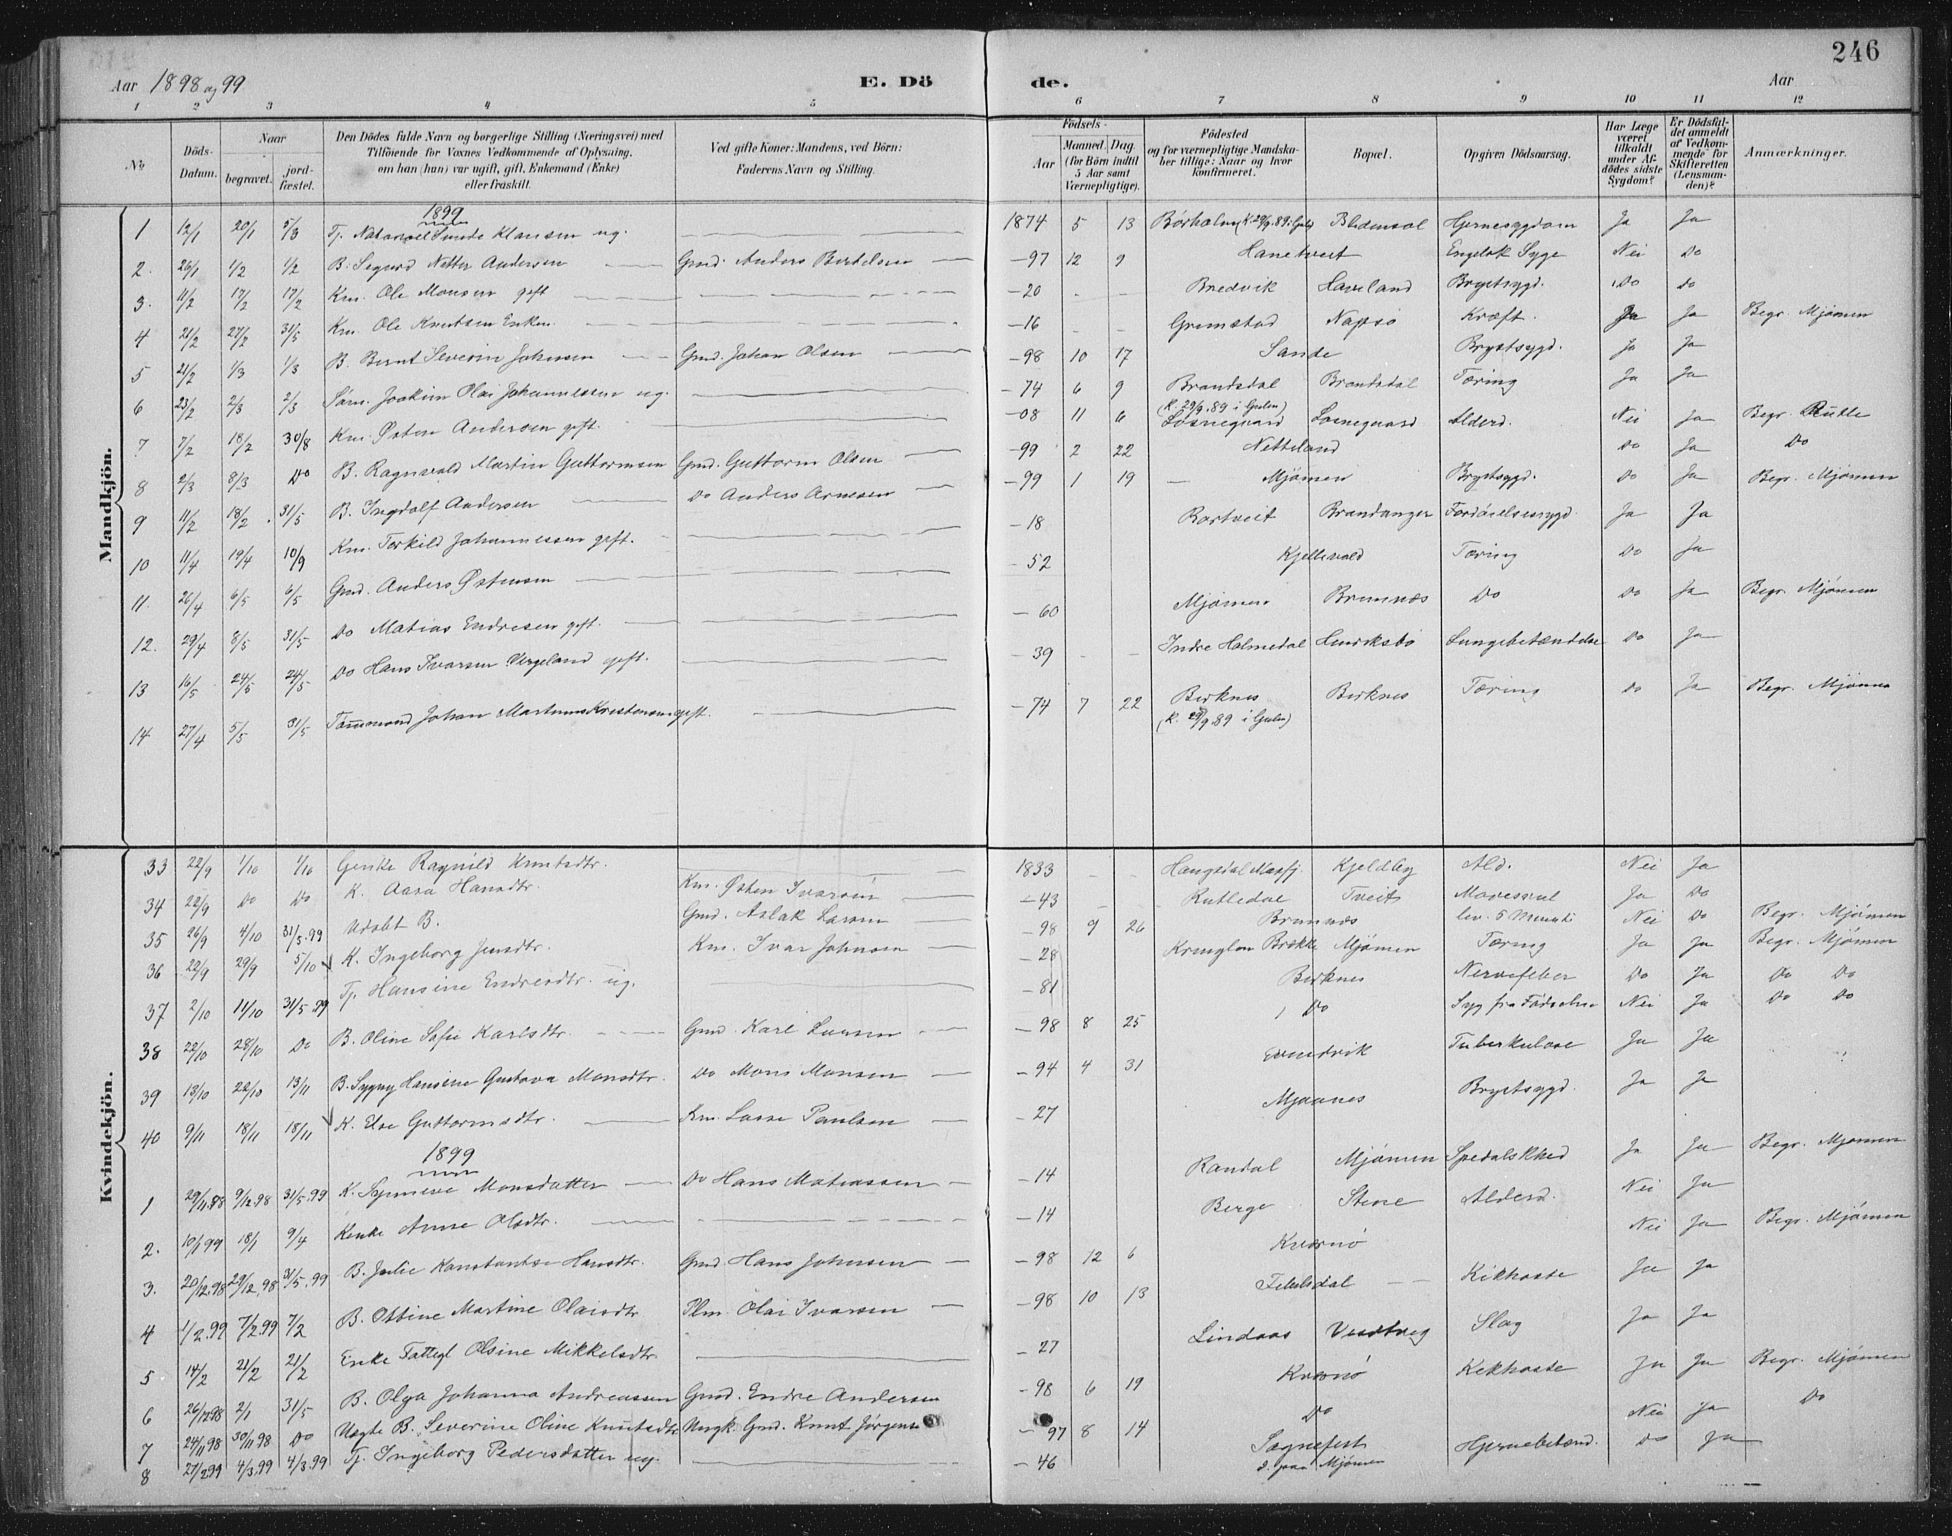 246
Aar 1898 og 99 E. Dö de. Aar
1 2 3 4 5 6 7 8 9 10 11 12
No Döds-Datum. Naar begravet. jord-fæstet. Den Dödes fulde Navn og borgerlige Stilling (Næringsvei) med Tilföiende for Voxnes Vedkommende af Oplysning, om han (hun) var ugift, gift, Enkemand (Enke) eller fraskilt. Ved gifte Koner: Mandens, ved Börn: Faderens Navn og Stilling. Födsels- Aar Maaned Dag (for Börn indtil 5 Aar samt Værnepligtige). Födested og for værnepligtige Mandskaber tillige: Naar og hvor konfirmeret. Bopæl. Opgiven Dödsaarsag. Har Læge været tilkaldt under Afdödes sidste Sygdom? Er Dödsfaldet anmeldt af Vedkommende for Skifteretten (Lensmanden)? Anmærkninger.
Mandkjön.
1899
1 12/1 20/1 5/3 Tj. Natanael Sunde Klausen ug. 1874 5 13 Børholm (K. 29/9.89 i Gulen) Hjernesygdom Ja Ja
2. 26/1 1/2 1/2 B. Sigurd Netter Andersen Gmd. Anders Bertelsen —97 12 9 Hanetveit Engelsk Syge Nei Do
3. 11/2 17/2 17/2 Km. Ole Monsen gift —20 Bredvik Haveland Brystsygd. Do Do
4 21/2 27/2 31/5 Km. Ole Knutsen Enkm. —16 Grimstad Napsö Kræft. Ja Ja Begr. Mjömen
5 21/2 1/3 1/3 B. Bernt Severin Johansen Gmd. Johan Olsen —98 10 17 Sande Brystsygd. Ja Ja
6 23/2 2/3 2/3 Søm. Joakim Olai Johannessen ug. —74 6 9 Brandsdal (K. 29/9.89 i Gulen) Brandsdal Tæring Ja Ja
7 7/2 18/2 30/8 Km. Østen Andersen gift. —08 11 6 Losnegaard Losnegaard Alderd. Nei Ja Begr. Rutle
8 2/3 8/3 Do B. Ragnvald Martin Guttormsen Gmd. Guttorm Olsen —99 2 22 Netteland Do Ja Do
9 11/2 18/2 31/5 B. Ingdolf Andersen Do Anders Arnesen —99 1 19 Mjömen Brystsygd. Do Ja Begr. Mjömen
10 11/4 19/4 10/9 Km. Torkild Johannessen gift. —18 Rortveit Brandanger Fordöielsessygd. Ja Ja
11. 26/4 6/5 6/5 Gmd. Anders Østensen —52 Kjellevold Tæring Do Ja
12. 29/4 8/5 31/5 Do Matias Endresen gift. —60 Mjömen Bremnæs Do Do Ja Begr. Mjömen
13 16/5 24/5 24/5 Do Hans Ivarsen Vergeland gift. —39 Indre Holmedal Henriksbö Lungebetændelse Do Ja
14 27/4 5/5 31/5 Tömmermand Johan Martinus Kristensen gift. —74 7 22 Birknes (K. 29/9 89 i Gulen) Birknes Tæring Do Ja Begr. Mjömen
Kvindekjön.
33 22/9 1/10 1/10 Genke Ragnild Knutsdtr. 1833 Haugsdal Masfj. Kjeldby Ald. Nei Ja
34 22/9 Do Do K. Aasa Hansdtr. Km. Østen Ivarsen —43 Rutledal Tveit Mavesaar Ja Do
35 26/9 4/10 31/5.99 Udöbt B. Gmd. Aslak Larsen —98 9 26 Bremnæs lev. 5 Minuti Nei Do Begr. Mjömen
36 22/9 29/9 5/10 K. Ingeborg Jensdtr. Km. Ivar Johnsen —28 Kringlen Brekke Mjömen Tæring Ja Ja Begr. Mjömen
37 2/10 11/10 31/5.99 Tj. Hansine Endresdtr. ug. —81 Birknes Nervefeber Do Ja Do Do
38 22/10 28/10 Do B. Oline Sofie Karlsdtr. Gmd. Karl Larsen —98 8 25 Do Syg fra Födselen Nei Ja Do Do
39 13/10 22/10 13/11 B. Sygny Hansine Gustava Monsdtr. Do Mons Monsen —94 4 31 Tuberkulose Ja Ja
40 9/11 18/11 18/11 K. Else Guttormsdtr. Km. Lasse Paulsen —27 Mjaanes Brystsygd. Ja Ja
1899
1 29/11.98 9/12.98 31/5.99 K. Synneve Monsdatter Do Hans Matiassen —14 Randal Mjömen Spedalskhed Ja Ja Begr. Mjömen
2. 10/1 99 18/1 9/4 Kenke Anne Olsdtr. —14 Berge Stene Alderd. Nei Ja
3. 20/12.98 29/12.98 31/5.99 B. Julie Konstantse Hansdtr. Gmd. Hans Johnsen —98 12 6 Kvernö Nei Ja Begr. Mjömen
4 1/2.99 7/2.99 7/2 B. Ottine Martine Olaisdtr. Plm. Olai Ivarsen —98 10 13 Kikhoste Ja Ja
5 14/2 21/2 21/2 Enke Fattigl. Olsine Mikkelsdtr. —27 Lindaas Slag Ja Ja
6 26/12 98 2/1 31/5 B. Olga Johanna Andreassen Gmd. Endre Andersen —98 6 19 Kvernö Kikhoste Ja Ja Begr. Mjömen
7 24/11 98 30/11 98 Do Uægte B. Severine Oline Knutsdtr. Ungk. Gmd. Knut Jörgensen —97 8 14 Do Nei Ja Do
8 27/2 99 4/3.99 4/3.99 Tj. Ingeborg Pedersdatter ug. —46 Sognefest d. paa Mjömen Hjernebetænd. Do Ja